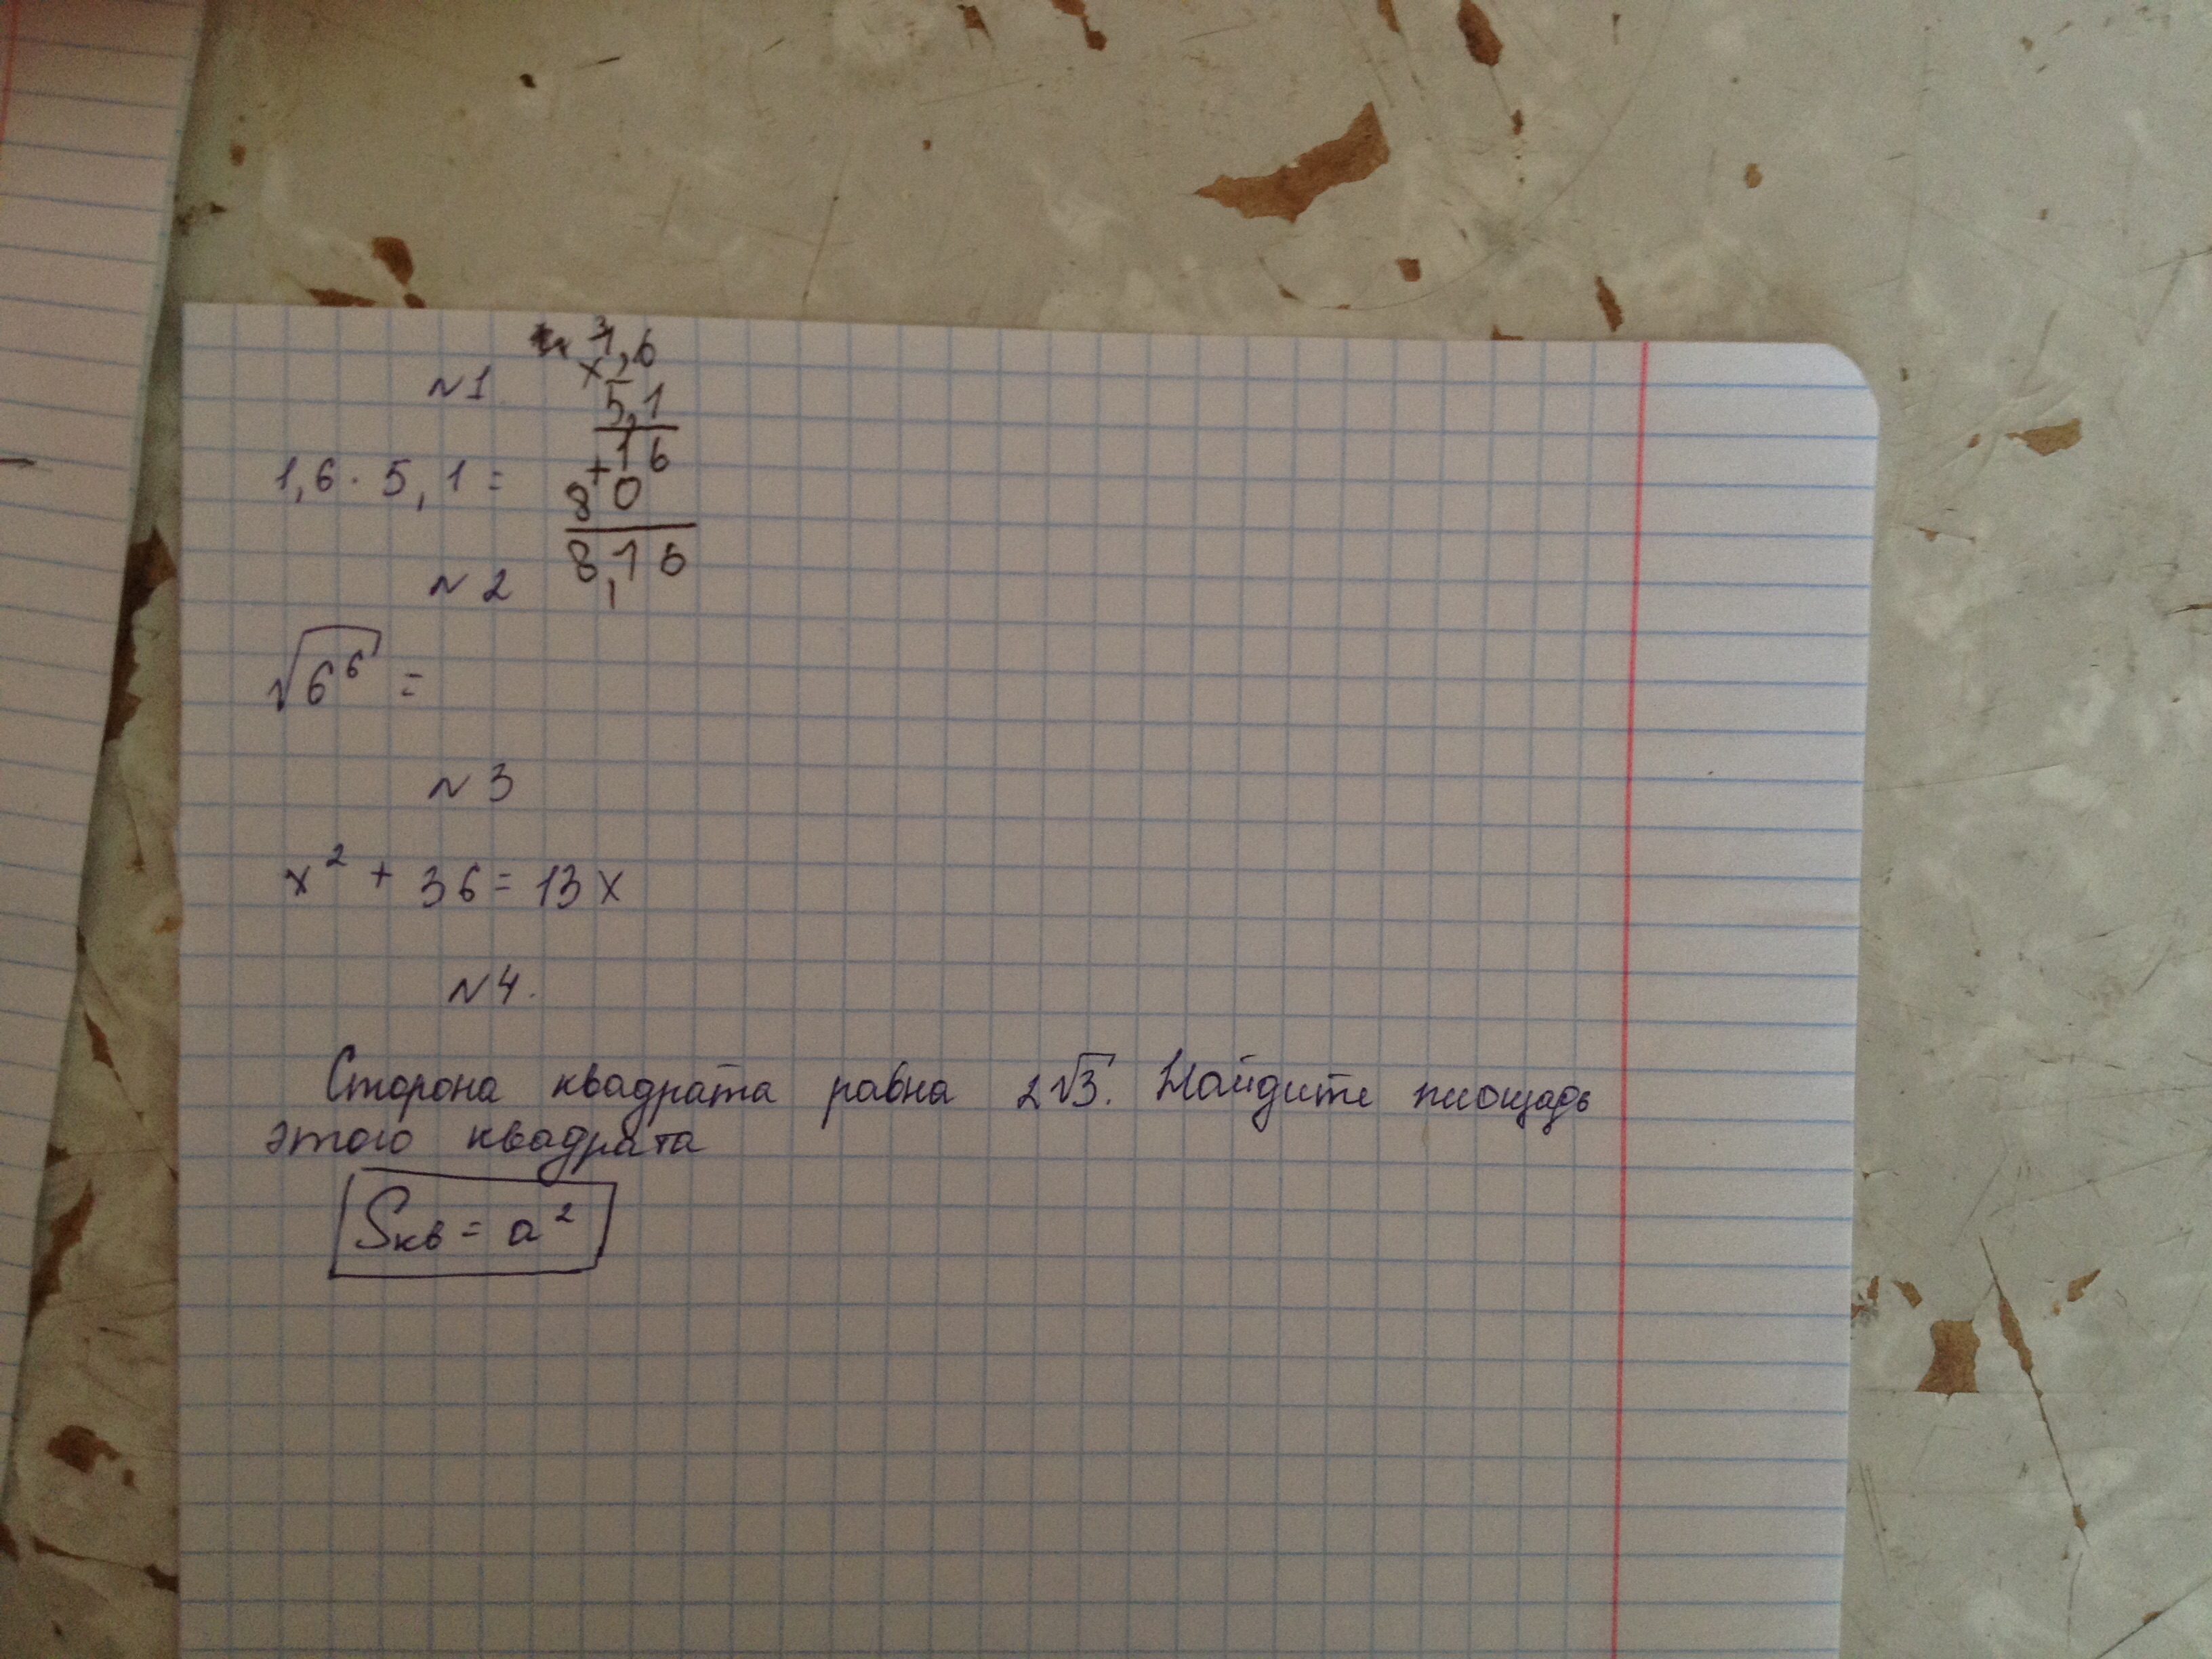 3
1,6
×
5,1
N1
16
+
80
1,6 · 5,1 =
8,16
N2
√6⁶ =
N3
x² + 36 = 13x
N4.
Сторона квадрата равна 2√3. Найдите площадь
этого квадрата
Sкв = a²